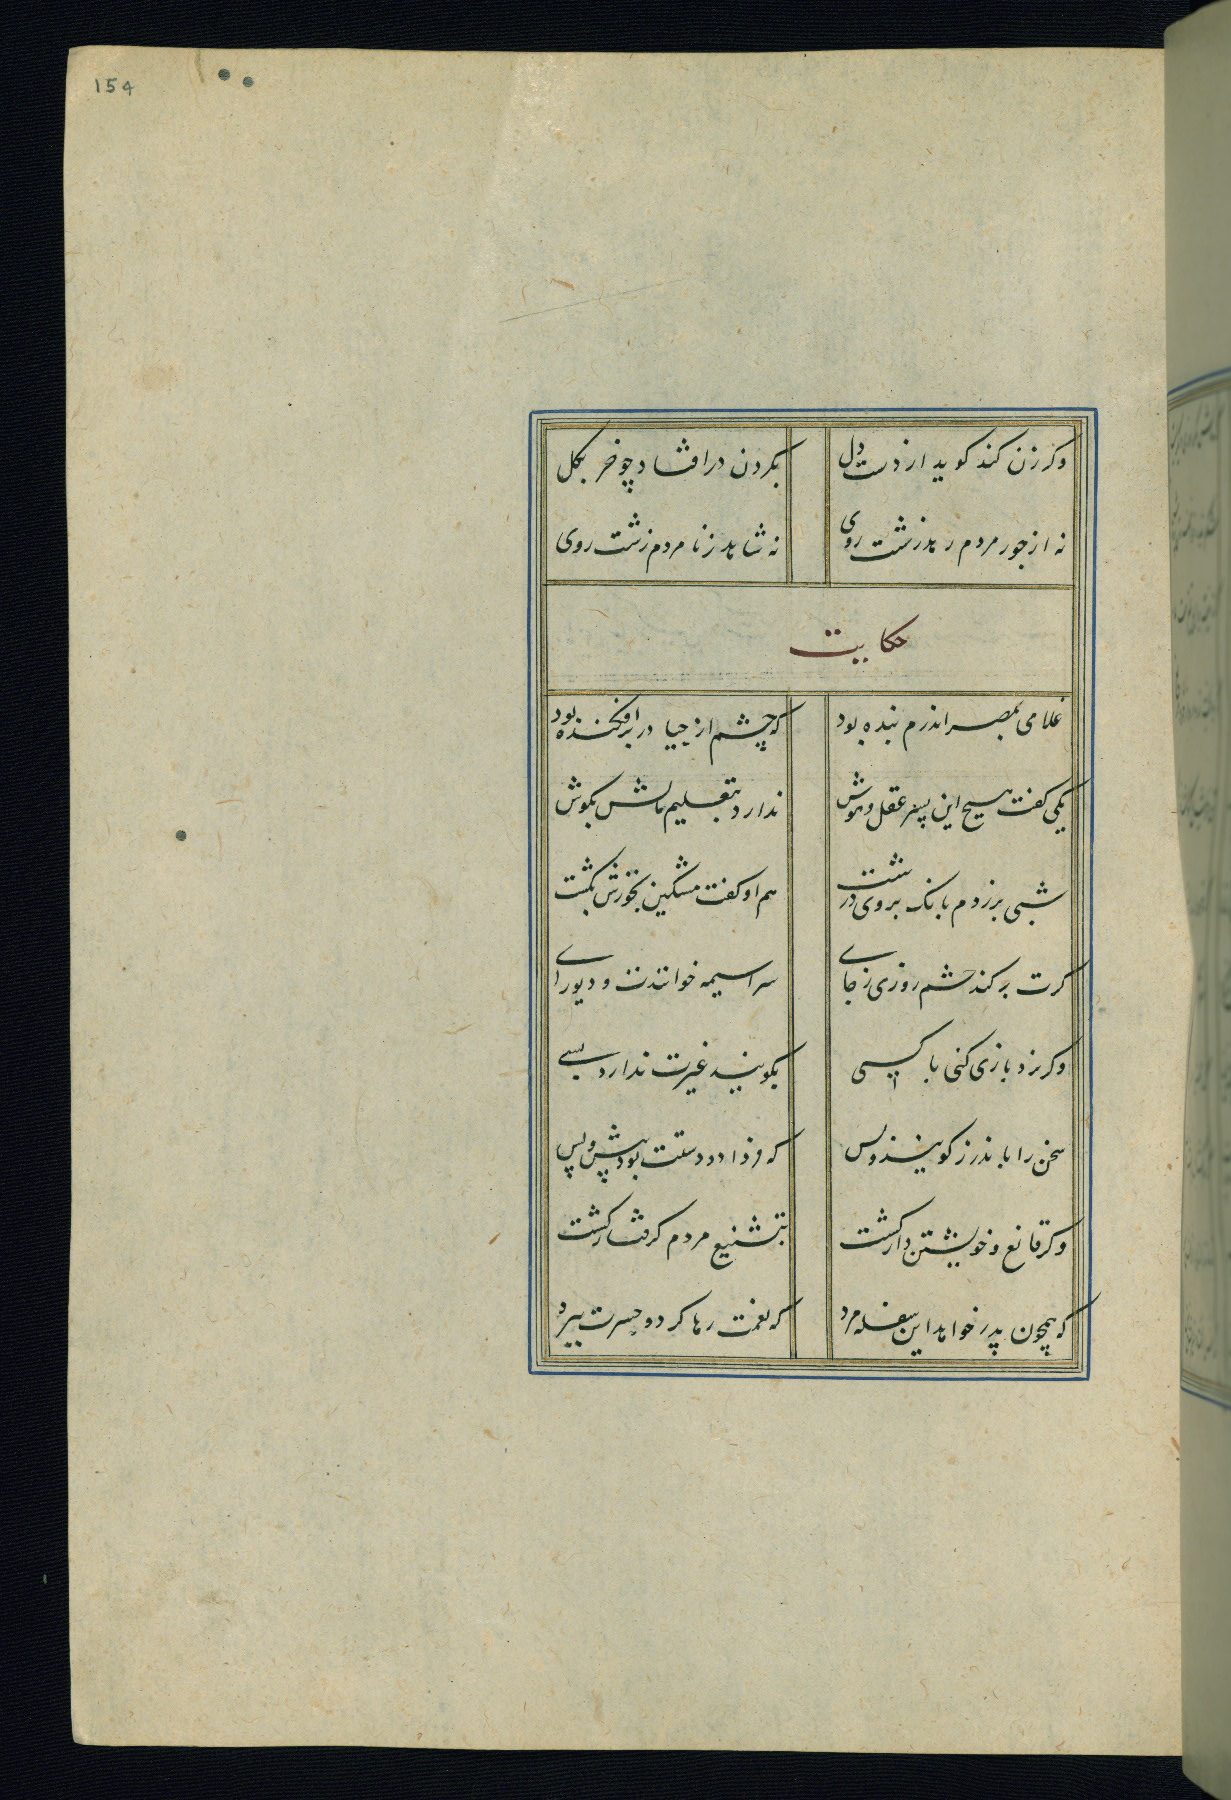 154
وکر زن کند کوید از دست دل
بکردن در افتاد چو خر بکل
نه از جور مردم رهد زشت روی
نه شاهد ز نا مردم زشت روی
حکایت
غلامی بمصر اندرم بنده بود
که چشم از حیا در بر افکنده بود
یکی کفت هیچ این پسر عقل و هوش
ندارد بتعلیم مالش بکوش
شبی بر زدم بانک بر وی درشت
هم او کفت مسکین بجورش بکشت
کرت بر کند خشم روزی ز جای
سراسیمه خوانندت و دیورای
وکر بردباری کنی با کسی
بکویند غیرت ندارد بسی
سخی را باندرز کویند و بس
که فردا دو دستت بود پیش و پس
وکر قانع و خویشتن دار کشت
بتشنیع مردم کرفتار کشت
که همچون پدر خواهد این سفله مرد
که نعمت رها کرد و حسرت ببرد